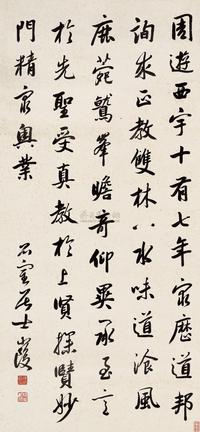 周遊西宇十有七年窮歷道邦
詢求正教雙林八水味道湌風
鹿菀鷲峯瞻奇仰異承至言
於先聖受真教於上賢探賾妙
門精窮奧業
石室居士